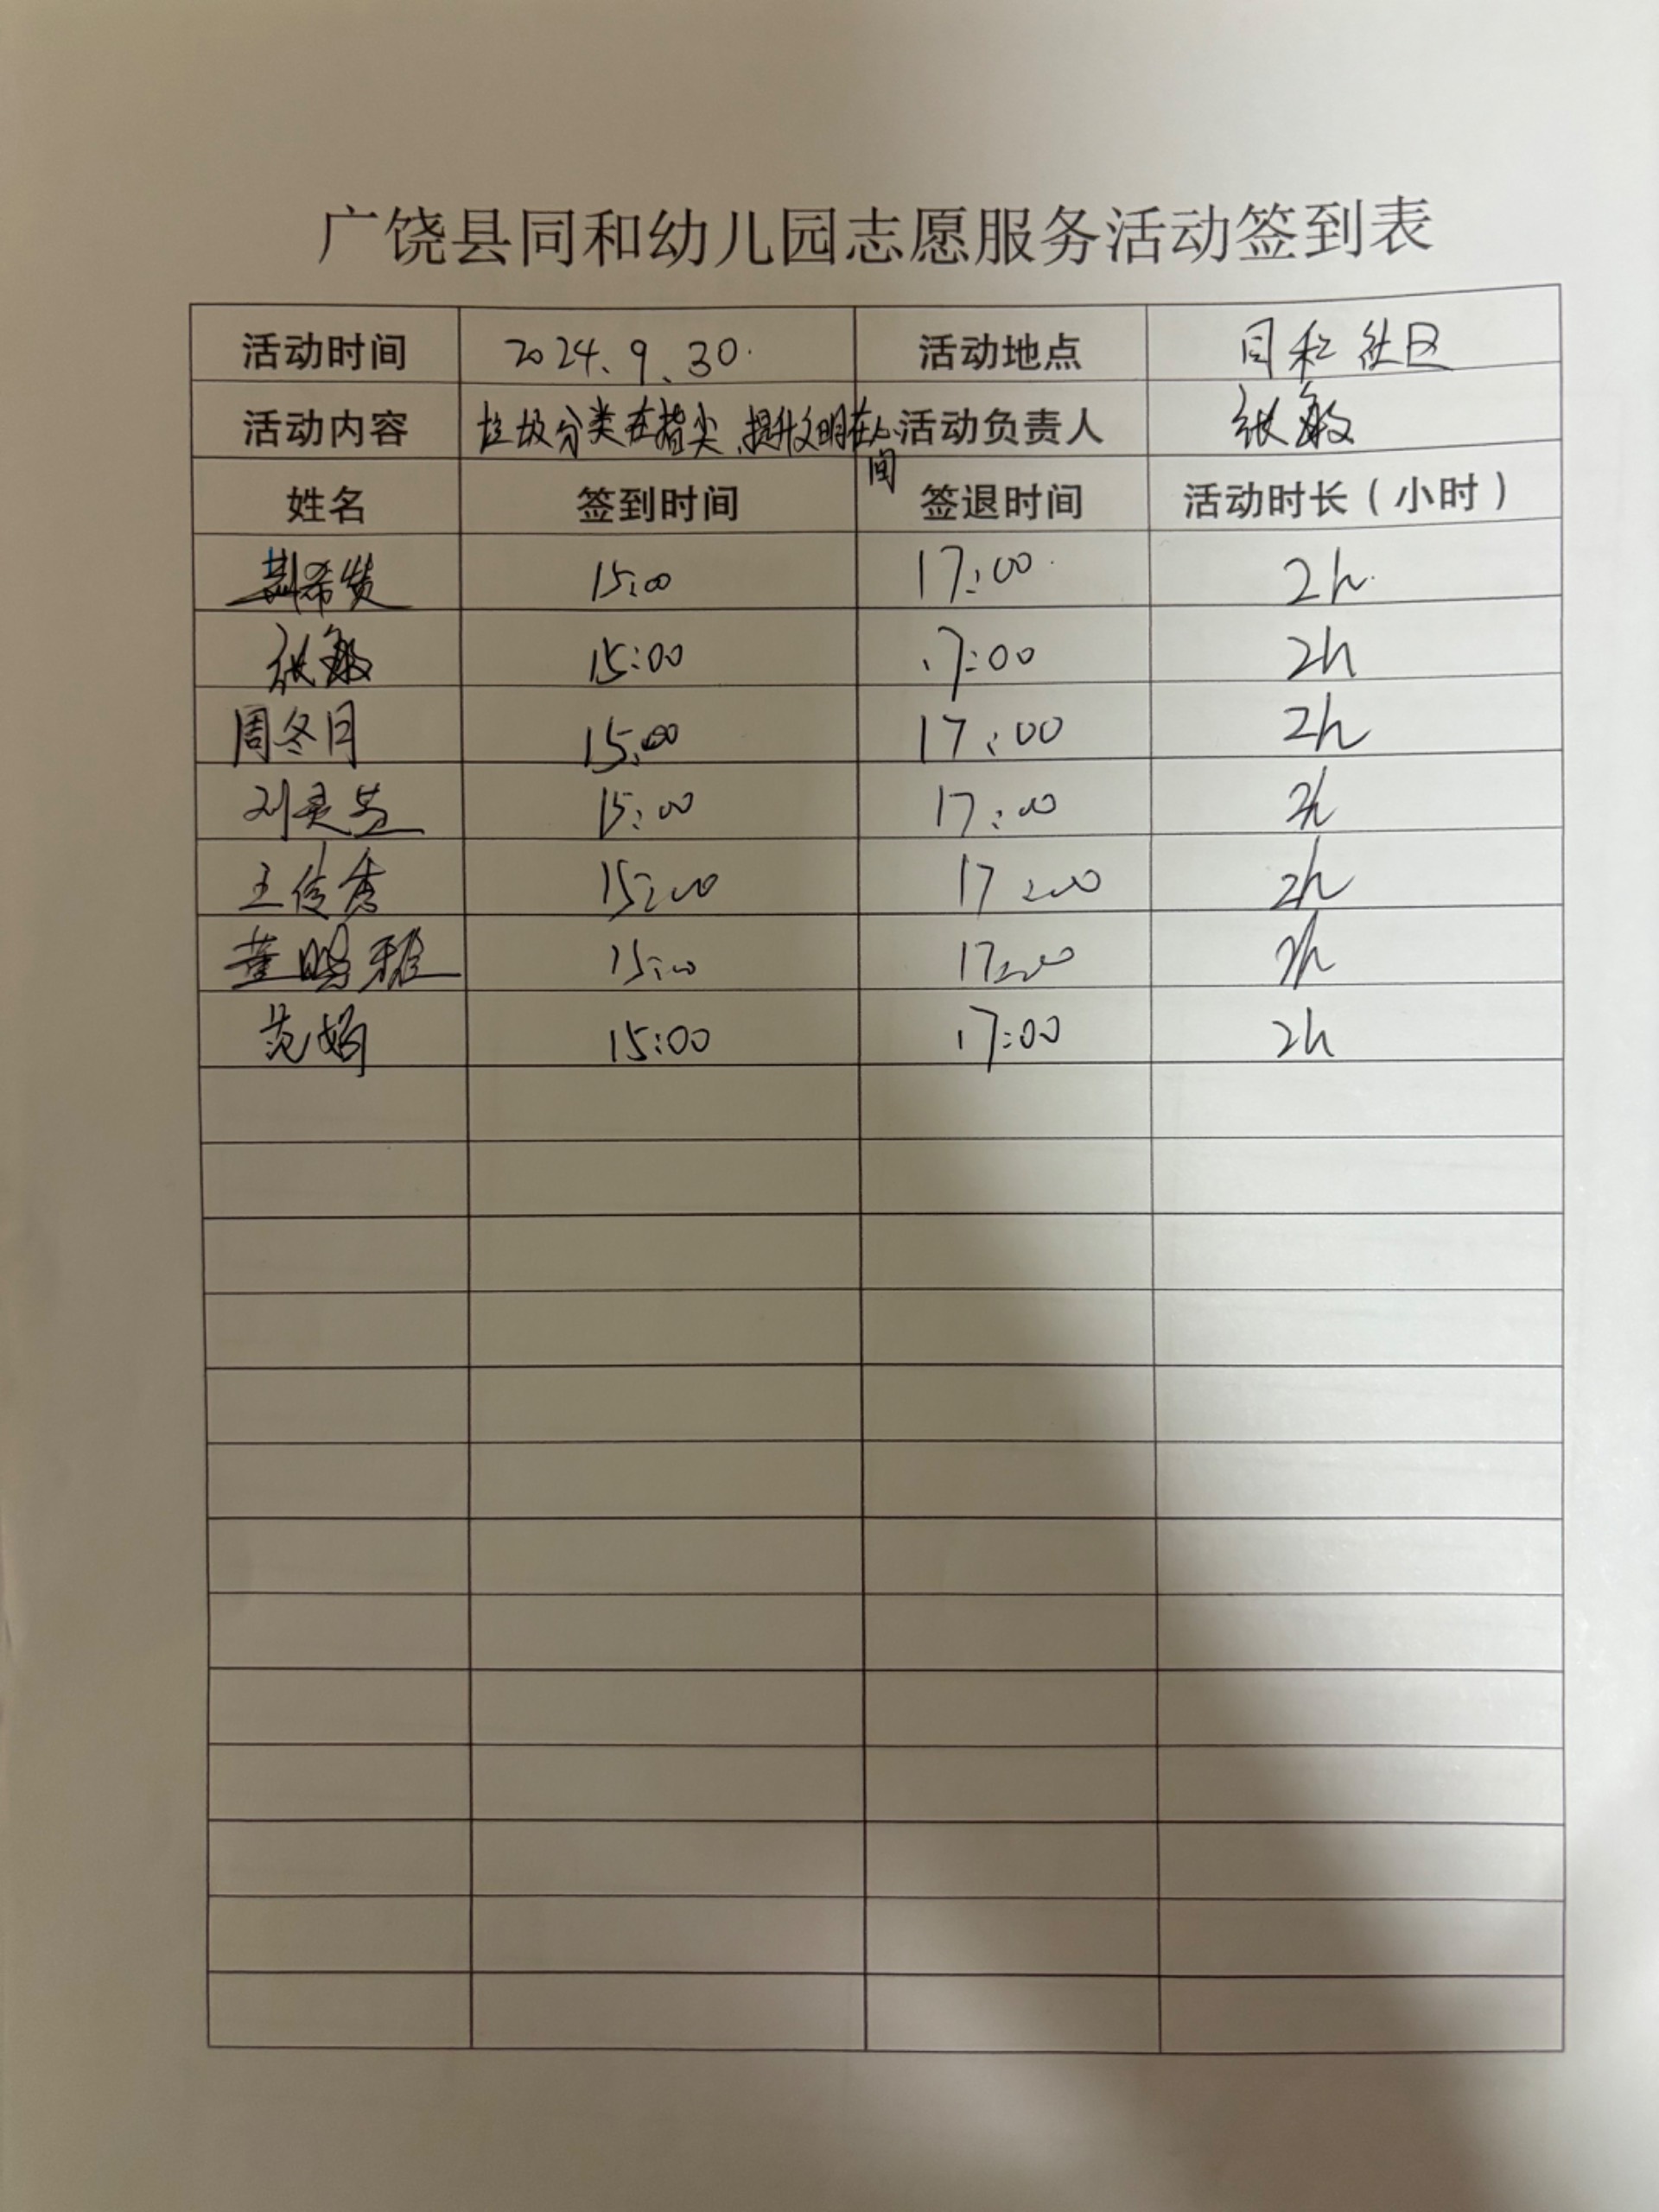 广饶县同和幼儿园志愿服务活动签到表
活动时间 2024.9.30. 活动地点 同和社区
活动内容 垃圾分类在指尖、提升文明在人间 活动负责人 张敏
姓名 签到时间 签退时间 活动时长(小时)
15:00 17:00 2h
张敏 15:00 17:00 2h
周冬月 15:00 17:00 2h
15:00 17:00 2h
王传秀 15:00 17:00 2h
董鸣雅 15:00 17:00 2h
范娟 15:00 17:00 2h